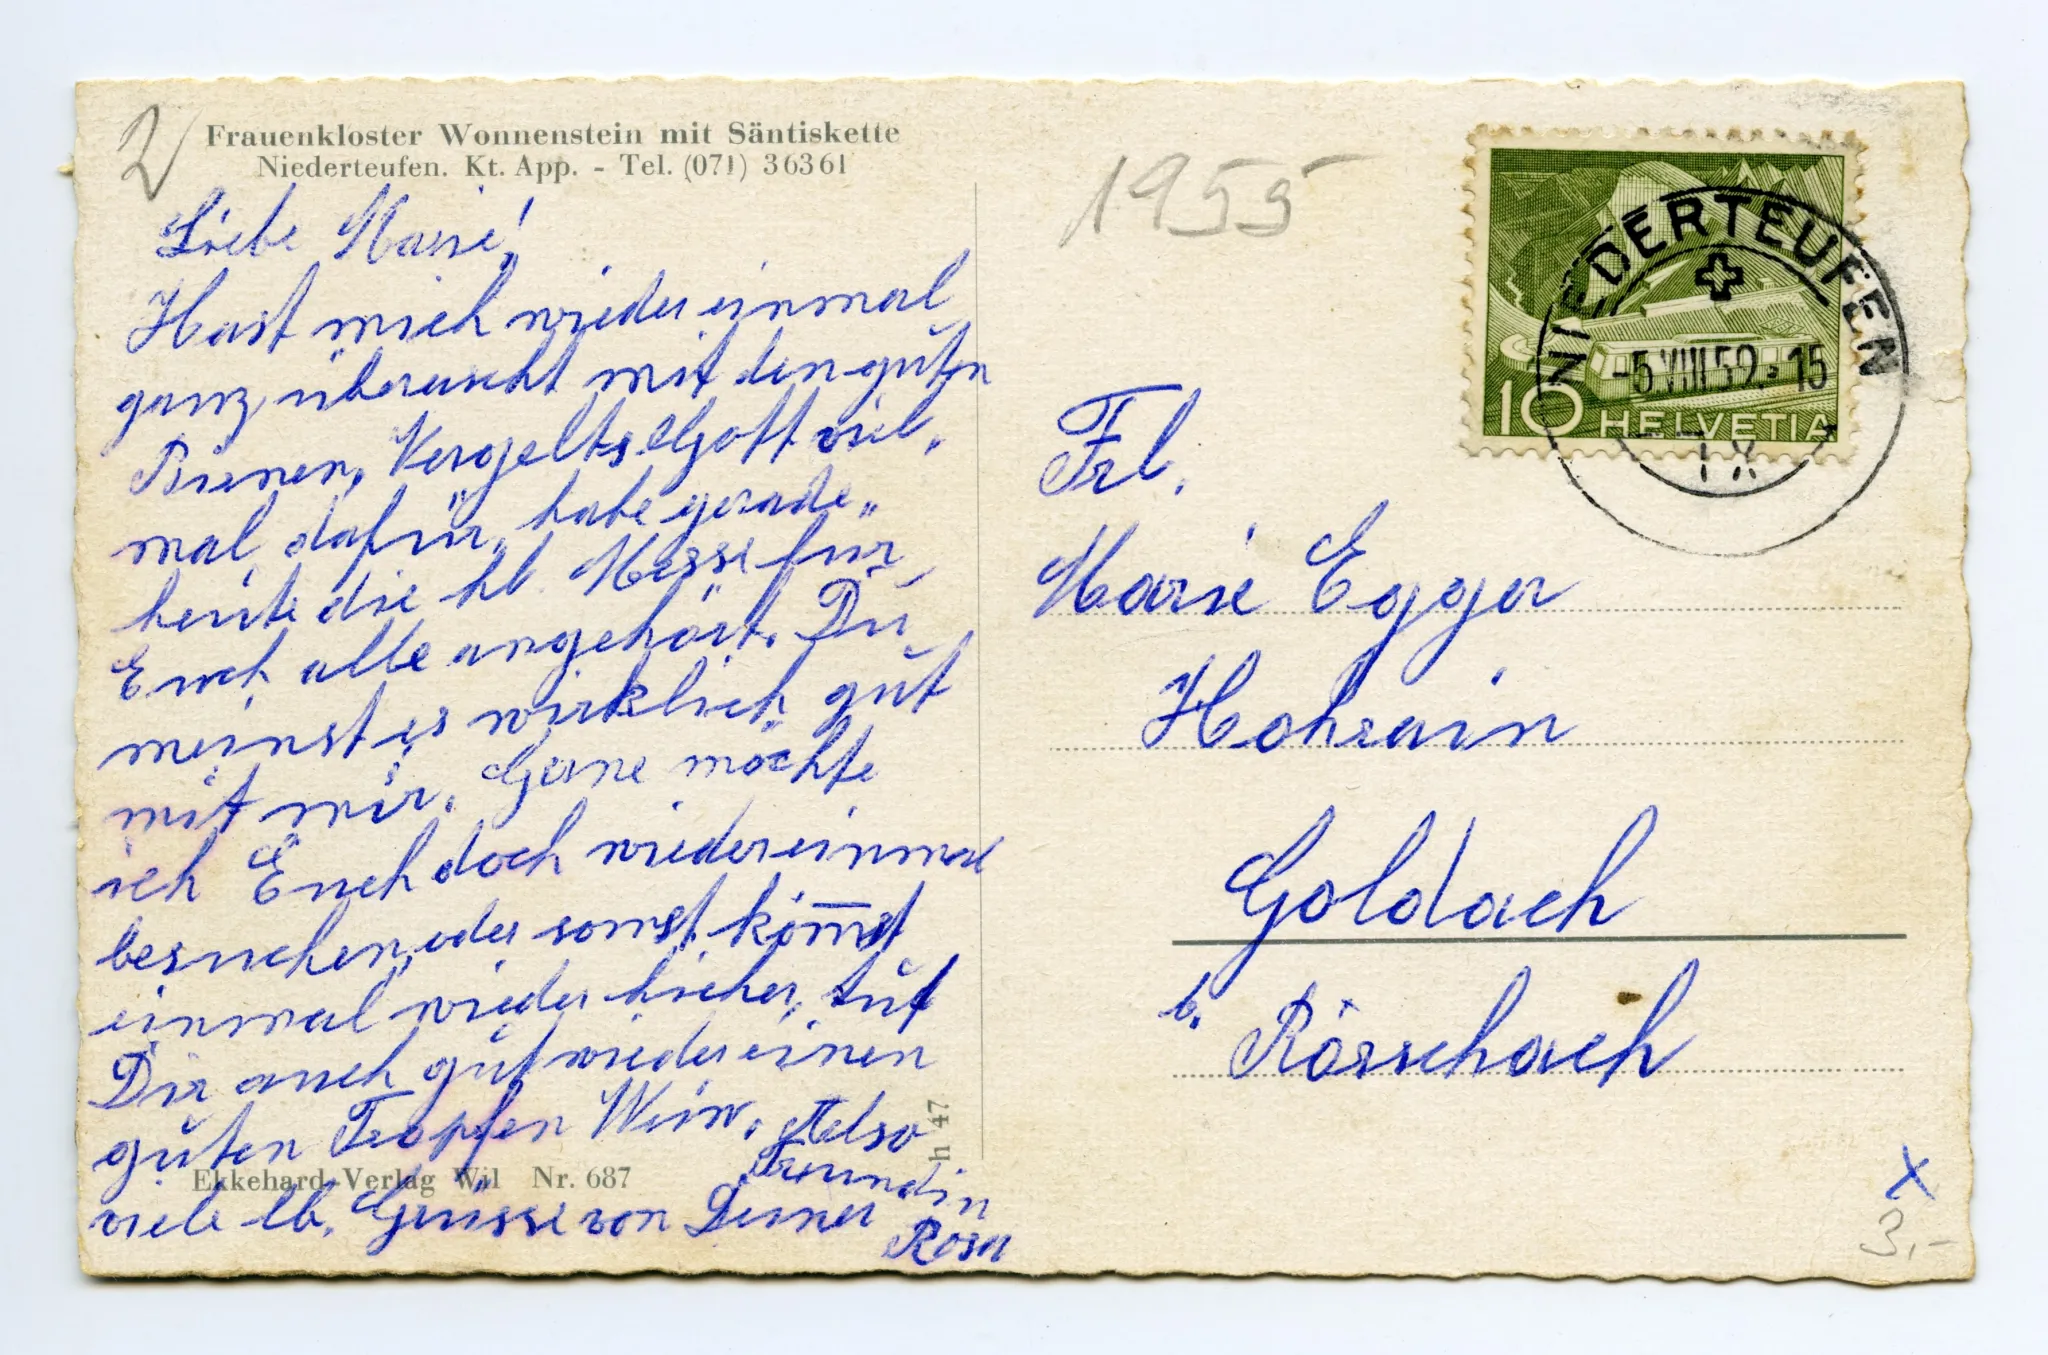 2
Frauenkloster Wonnenstein mit Säntiskette
Niederteufen. Kt. App. - Tel. (071) 36361
Liebe Marie!
Hast mich wieder einmal
ganz überrascht mit den guten
Birnen, Vergelts Gott viel„
mal dafür, habe gerade„
heute die hl. Messe für
Euch alle angehört. Du
meinst es wirklich gut
mit mir. Gerne möchte
ich Euch doch wiedereinmal
besuchen, oder sonst kom̅st
einmal wieder hieher, tut
Dir auch gut wieder einen
guten Tropfen Wein. Also
viele lb. Grüsse von Deiner
Freundin
Rosa
Ekkehard-Verlag Wil Nr. 687
h 47
1955
10 HELVETIA
NIEDERTEUFEN
-5.VIII 59.-15
Frl.
Marie Egger
Hohrain
Goldach
b. Rorschach
x
3,-